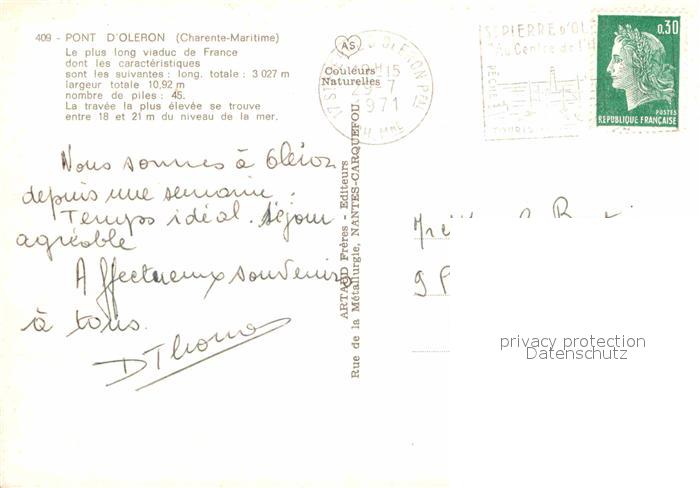 409 - PONT D'OLERON (Charente-Maritime)
Le plus long viaduc de France
dont les caractéristiques
sont les suivantes : long. totale : 3 027 m
largeur totale 10,92 m
nombre de piles : 45.
La travée la plus élevée se trouve
entre 18 et 21 m du niveau de la mer.
AS
Couleurs
Naturelles
17 ST PIERRE D'OLERON PPAL
15
29-7
1971
CH. MME
ST PIERRE D'OL
Au Centre de l'Il
PÊCHE
TOURIS
0,30
POSTES
REPUBLIQUE FRANÇAISE
Nous sommes à Oléron
depuis une semaine.
Temps idéal. Séjour
agréable
Affectueux souvenirs
à tous.
D Thomas
ARTAUD Frères - Editeurs
Rue de la Métallurgie, NANTES-CARQUEFOU
privacy protection
Datenschutz